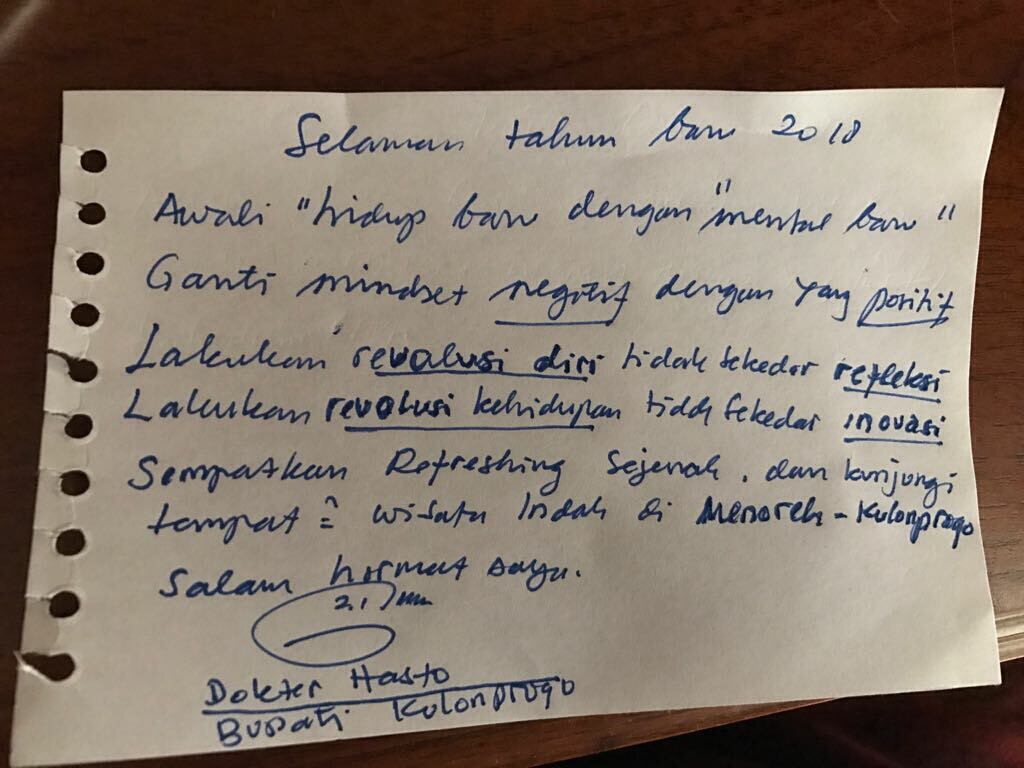 Selamat tahun baru 2018
Awali "hidup baru dengan "mental baru"
Ganti mindset negatif dengan yang positif
Lakukan revolusi diri tidak sekedar refleksi
Lakukan revolusi kehidupan tidak sekedar inovasi
Sempatkan Refreshing Sejenak, dan kunjungi
tempat = wisata Indah di Menoreh - Kulonprogo
Salam hormat saya.
Dokter Hasto
Bupati Kulonprogo